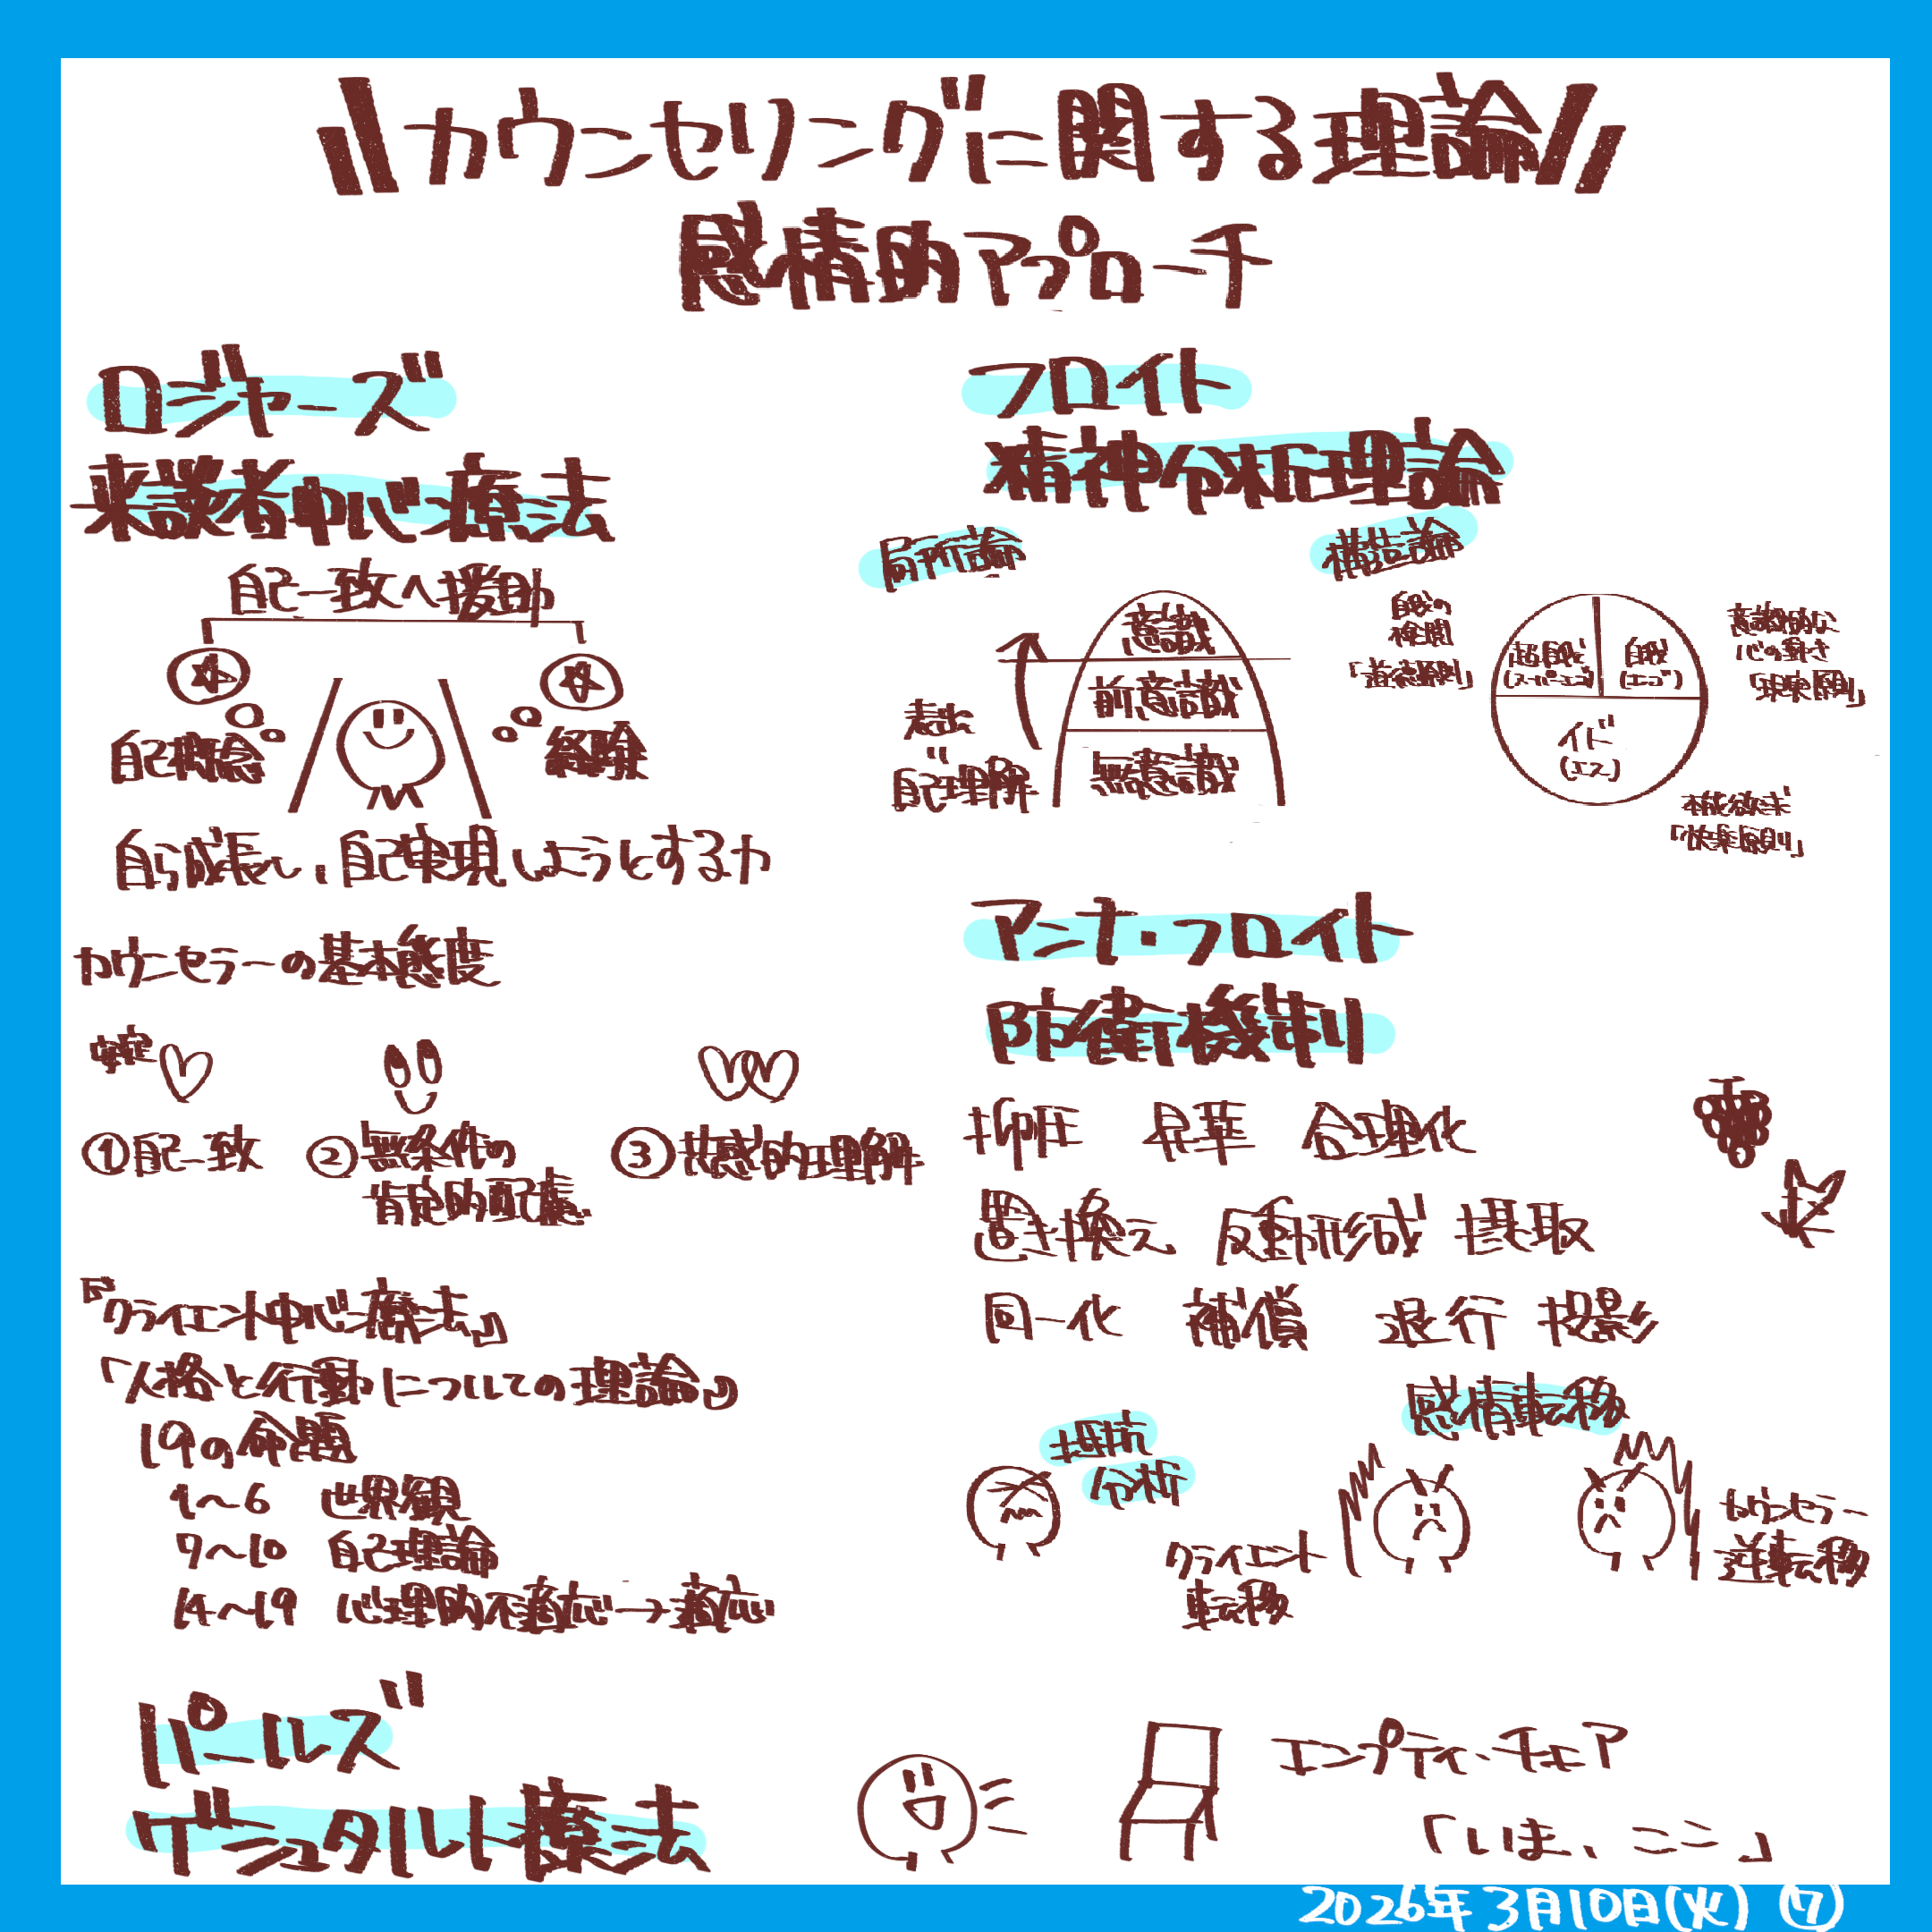 カウンセリングに関する理論
感情的アプローチ
ロジャーズ
来談者中心療法
自己一致へ援助
自己概念
経験
自ら成長し、自己実現しようとする力
カウンセラーの基本態度
安定
①自己一致
②無条件の
肯定的配慮
③共感的理解
『クライエント中心療法』
「人格と行動についての理論」
19の命題
1～6 世界観
7～10 自己理論
14～19 心理的不適応→適応
フロイト
精神分析理論
局所論
意識
前意識
無意識
表出
"
自己理解
構造論
自我の
検閲
「道徳原則」
超自我
(スーパーエゴ)
自我
(エゴ)
イド
(エス)
「現実原則」
本能欲求
「快楽原則」
アンナ・フロイト
防衛機制
抑圧 昇華 合理化
置き換え 反動形成 摂取
同一化 補償 退行 投影
抵抗
分析
感情転移
クライエント
転移
カウンセラー
逆転移
パールズ
ゲシュタルト療法
エンプティ・チェア
「いま、ここ」
2026年3月10日(火) ⑰